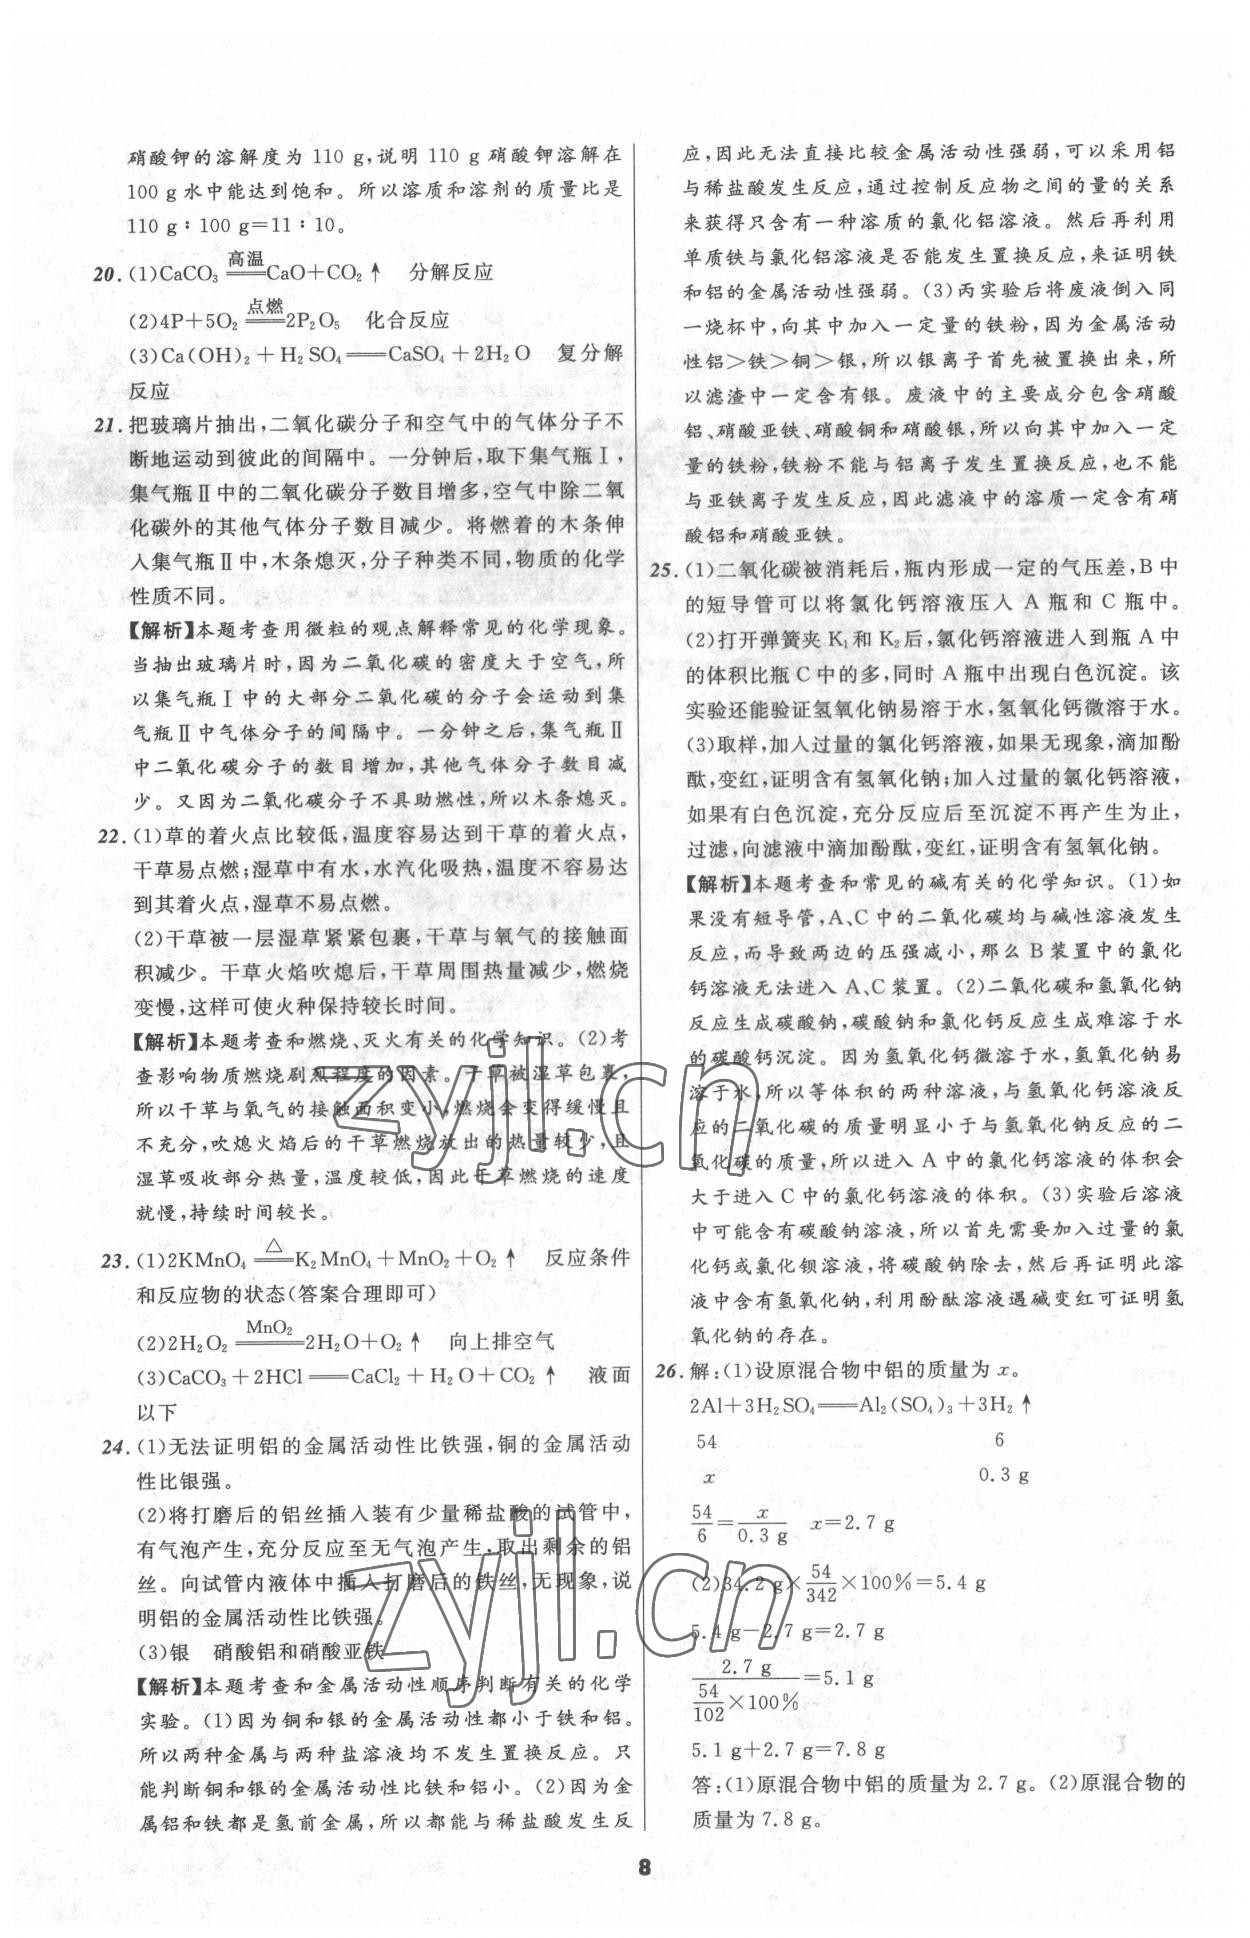 硝酸钾的溶解度为 110 g,说明 110 g 硝酸钾溶解在
100 g 水中能达到饱和。所以溶质和溶剂的质量比是
110 g∶100 g=11∶10。
20. (1)CaCO₃ =高温= CaO+CO₂↑ 分解反应
(2)4P+5O₂ =点燃= 2P₂O₅ 化合反应
(3)Ca(OH)₂+H₂SO₄══CaSO₄+2H₂O 复分解
反应
21. 把玻璃片抽出,二氧化碳分子和空气中的气体分子不
断地运动到彼此的间隔中。一分钟后,取下集气瓶Ⅰ,
集气瓶Ⅱ中的二氧化碳分子数目增多,空气中除二氧
化碳外的其他气体分子数目减少。将燃着的木条伸
入集气瓶Ⅱ中,木条熄灭,分子种类不同,物质的化学
性质不同。
【解析】本题考查用微粒的观点解释常见的化学现象。
当抽出玻璃片时,因为二氧化碳的密度大于空气,所
以集气瓶Ⅰ中的大部分二氧化碳的分子会运动到集
气瓶Ⅱ中气体分子的间隔中。一分钟之后,集气瓶Ⅱ
中二氧化碳分子的数目增加,其他气体分子数目减
少。又因为二氧化碳分子不具助燃性,所以木条熄灭。
22. (1)草的着火点比较低,温度容易达到干草的着火点,
干草易点燃;湿草中有水,水汽化吸热,温度不容易达
到其着火点,湿草不易点燃。
(2)干草被一层湿草紧紧包裹,干草与氧气的接触面
积减少。干草火焰吹熄后,干草周围热量减少,燃烧
变慢,这样可使火种保持较长时间。
【解析】本题考查和燃烧、灭火有关的化学知识。(2)考
查影响物质燃烧剧烈程度的因素。干草被湿草包裹,
所以干草与氧气的接触面积变小,燃烧会变得缓慢且
不充分,吹熄火焰后的干草燃烧放出的热量较少,且
湿草吸收部分热量,温度较低,因此干草燃烧的速度
就慢,持续时间较长。
23. (1)2KMnO₄ =△= K₂MnO₄+MnO₂+O₂↑ 反应条件
和反应物的状态(答案合理即可)
(2)2H₂O₂ =MnO₂= 2H₂O+O₂↑ 向上排空气
(3)CaCO₃+2HCl══CaCl₂+H₂O+CO₂↑ 液面
以下
24. (1)无法证明铝的金属活动性比铁强,铜的金属活动
性比银强。
(2)将打磨后的铝丝插入装有少量稀盐酸的试管中,
有气泡产生,充分反应至无气泡产生,取出剩余的铝
丝。向试管内液体中插入打磨后的铁丝,无现象,说
明铝的金属活动性比铁强。
(3)银 硝酸铝和硝酸亚铁
【解析】本题考查和金属活动性顺序判断有关的化学
实验。(1)因为铜和银的金属活动性都小于铁和铝。
所以两种金属与两种盐溶液均不发生置换反应。只
能判断铜和银的金属活动性比铁和铝小。(2)因为金
属铝和铁都是氢前金属,所以都能与稀盐酸发生反
应,因此无法直接比较金属活动性强弱,可以采用铝
与稀盐酸发生反应,通过控制反应物之间的量的关系
来获得只含有一种溶质的氯化铝溶液。然后再利用
单质铁与氯化铝溶液是否能发生置换反应,来证明铁
和铝的金属活动性强弱。(3)丙实验后将废液倒入同
一烧杯中,向其中加入一定量的铁粉,因为金属活动
性铝>铁>铜>银,所以银离子首先被置换出来,所
以滤渣中一定含有银。废液中的主要成分包含硝酸
铝、硝酸亚铁、硝酸铜和硝酸银,所以向其中加入一定
量的铁粉,铁粉不能与铝离子发生置换反应,也不能
与亚铁离子发生反应,因此滤液中的溶质一定含有硝
酸铝和硝酸亚铁。
25. (1)二氧化碳被消耗后,瓶内形成一定的气压差,B 中
的短导管可以将氯化钙溶液压入 A 瓶和 C 瓶中。
(2)打开弹簧夹 K₁ 和 K₂ 后,氯化钙溶液进入到瓶 A 中
的体积比瓶 C 中的多,同时 A 瓶中出现白色沉淀。该
实验还能验证氢氧化钠易溶于水,氢氧化钙微溶于水。
(3)取样,加入过量的氯化钙溶液,如果无现象,滴加酚
酞,变红,证明含有氢氧化钠;加入过量的氯化钙溶液,
如果有白色沉淀,充分反应后至沉淀不再产生为止,
过滤,向滤液中滴加酚酞,变红,证明含有氢氧化钠。
【解析】本题考查和常见的碱有关的化学知识。(1)如
果没有短导管,A、C 中的二氧化碳均与碱性溶液发生
反应,而导致两边的压强减小,那么 B 装置中的氯化
钙溶液无法进入 A、C 装置。(2)二氧化碳和氢氧化钠
反应生成碳酸钠,碳酸钠和氯化钙反应生成难溶于水
的碳酸钙沉淀。因为氢氧化钙微溶于水,氢氧化钠易
溶于水,所以等体积的两种溶液,与氢氧化钙溶液反
应的二氧化碳的质量明显小于与氢氧化钠反应的二
氧化碳的质量,所以进入 A 中的氯化钙溶液的体积会
大于进入 C 中的氯化钙溶液的体积。(3)实验后溶液
中可能含有碳酸钠溶液,所以首先需要加入过量的氯
化钙或氯化钡溶液,将碳酸钠除去,然后再证明此溶
液中含有氢氧化钠,利用酚酞溶液遇碱变红可证明氢
氧化钠的存在。
26. 解:(1)设原混合物中铝的质量为 x。
2Al+3H₂SO₄══Al₂(SO₄)₃+3H₂↑
54 6
x 0.3 g
54/6 = x/0.3 g x=2.7 g
(2)34.2 g×54/342×100%=5.4 g
5.4 g−2.7 g=2.7 g
2.7 g/(54/102×100%)=5.1 g
5.1 g+2.7 g=7.8 g
答:(1)原混合物中铝的质量为 2.7 g。(2)原混合物的
质量为 7.8 g。
8
zyjl.cn
zyjl.cn